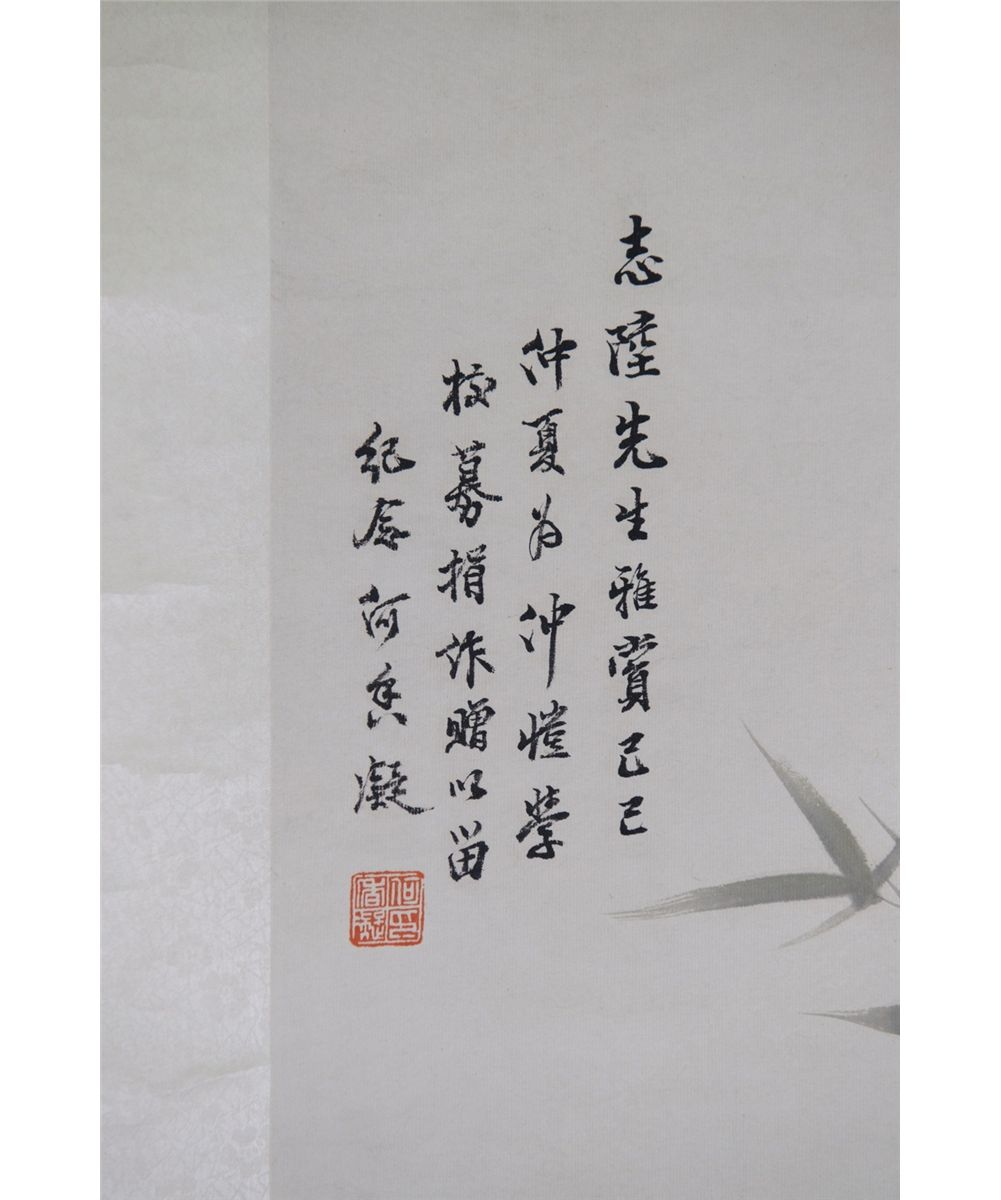 志陸先生雅賞己巳
仲夏为仲愷學
校募捐作贈以留
紀念何香凝
何香凝印